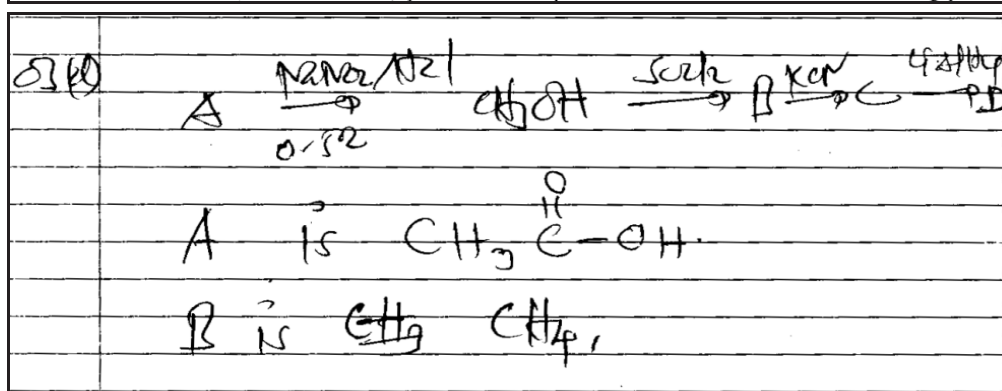 A NaNO2/HCl → 0-5° CH3OH SOCl2 → B KCN → C LiAlH4 → D
A is CH3C(=O)-OH.
B is CH3 CH4,